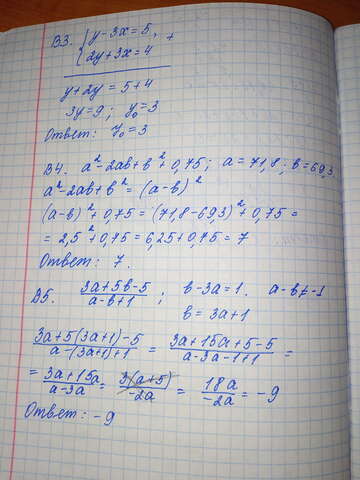 В3. { y - 3x = 5,
2y + 3x = 4 +
y + 2y = 5 + 4
3y = 9; y₀ = 3
Ответ: y₀ = 3
В4. a² - 2ab + b² + 0,75; a = 71,8; b = 69,3.
a² - 2ab + b² = (a - b)²
(a-b)² + 0,75 = (71,8 - 69,3)² + 0,75 =
= 2,5² + 0,75 = 6,25 + 0,75 = 7
Ответ: 7.
В5. (3a + 5b - 5)/(a - b + 1); b - 3a = 1. a - b ≠ -1
b = 3a + 1
(3a + 5(3a+1) - 5)/(a - (3a+1) + 1) = (3a + 15a + 5 - 5)/(a - 3a - 1 + 1) =
= (3a + 15a)/(a - 3a) = 3(a+5)/(-2a) = 18a/(-2a) = -9
Ответ: -9